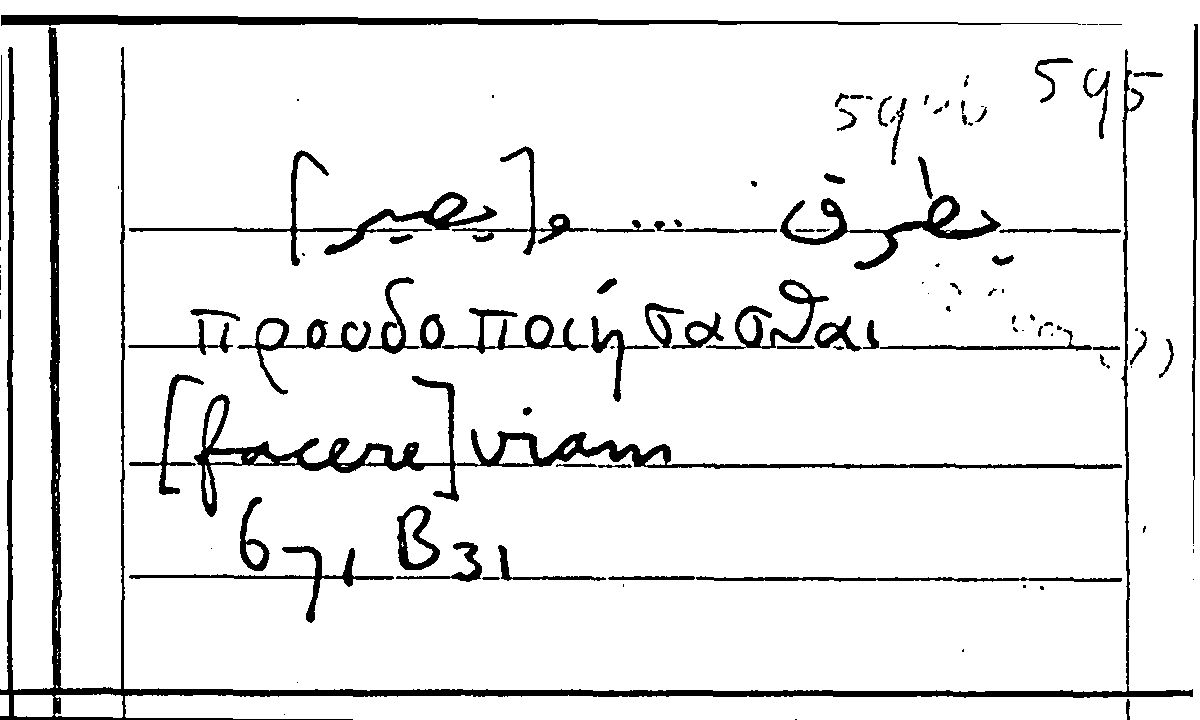 595
يطرق ... و [يصير]
προοδοποιήσασθαι
[facere] viam
671 B 31